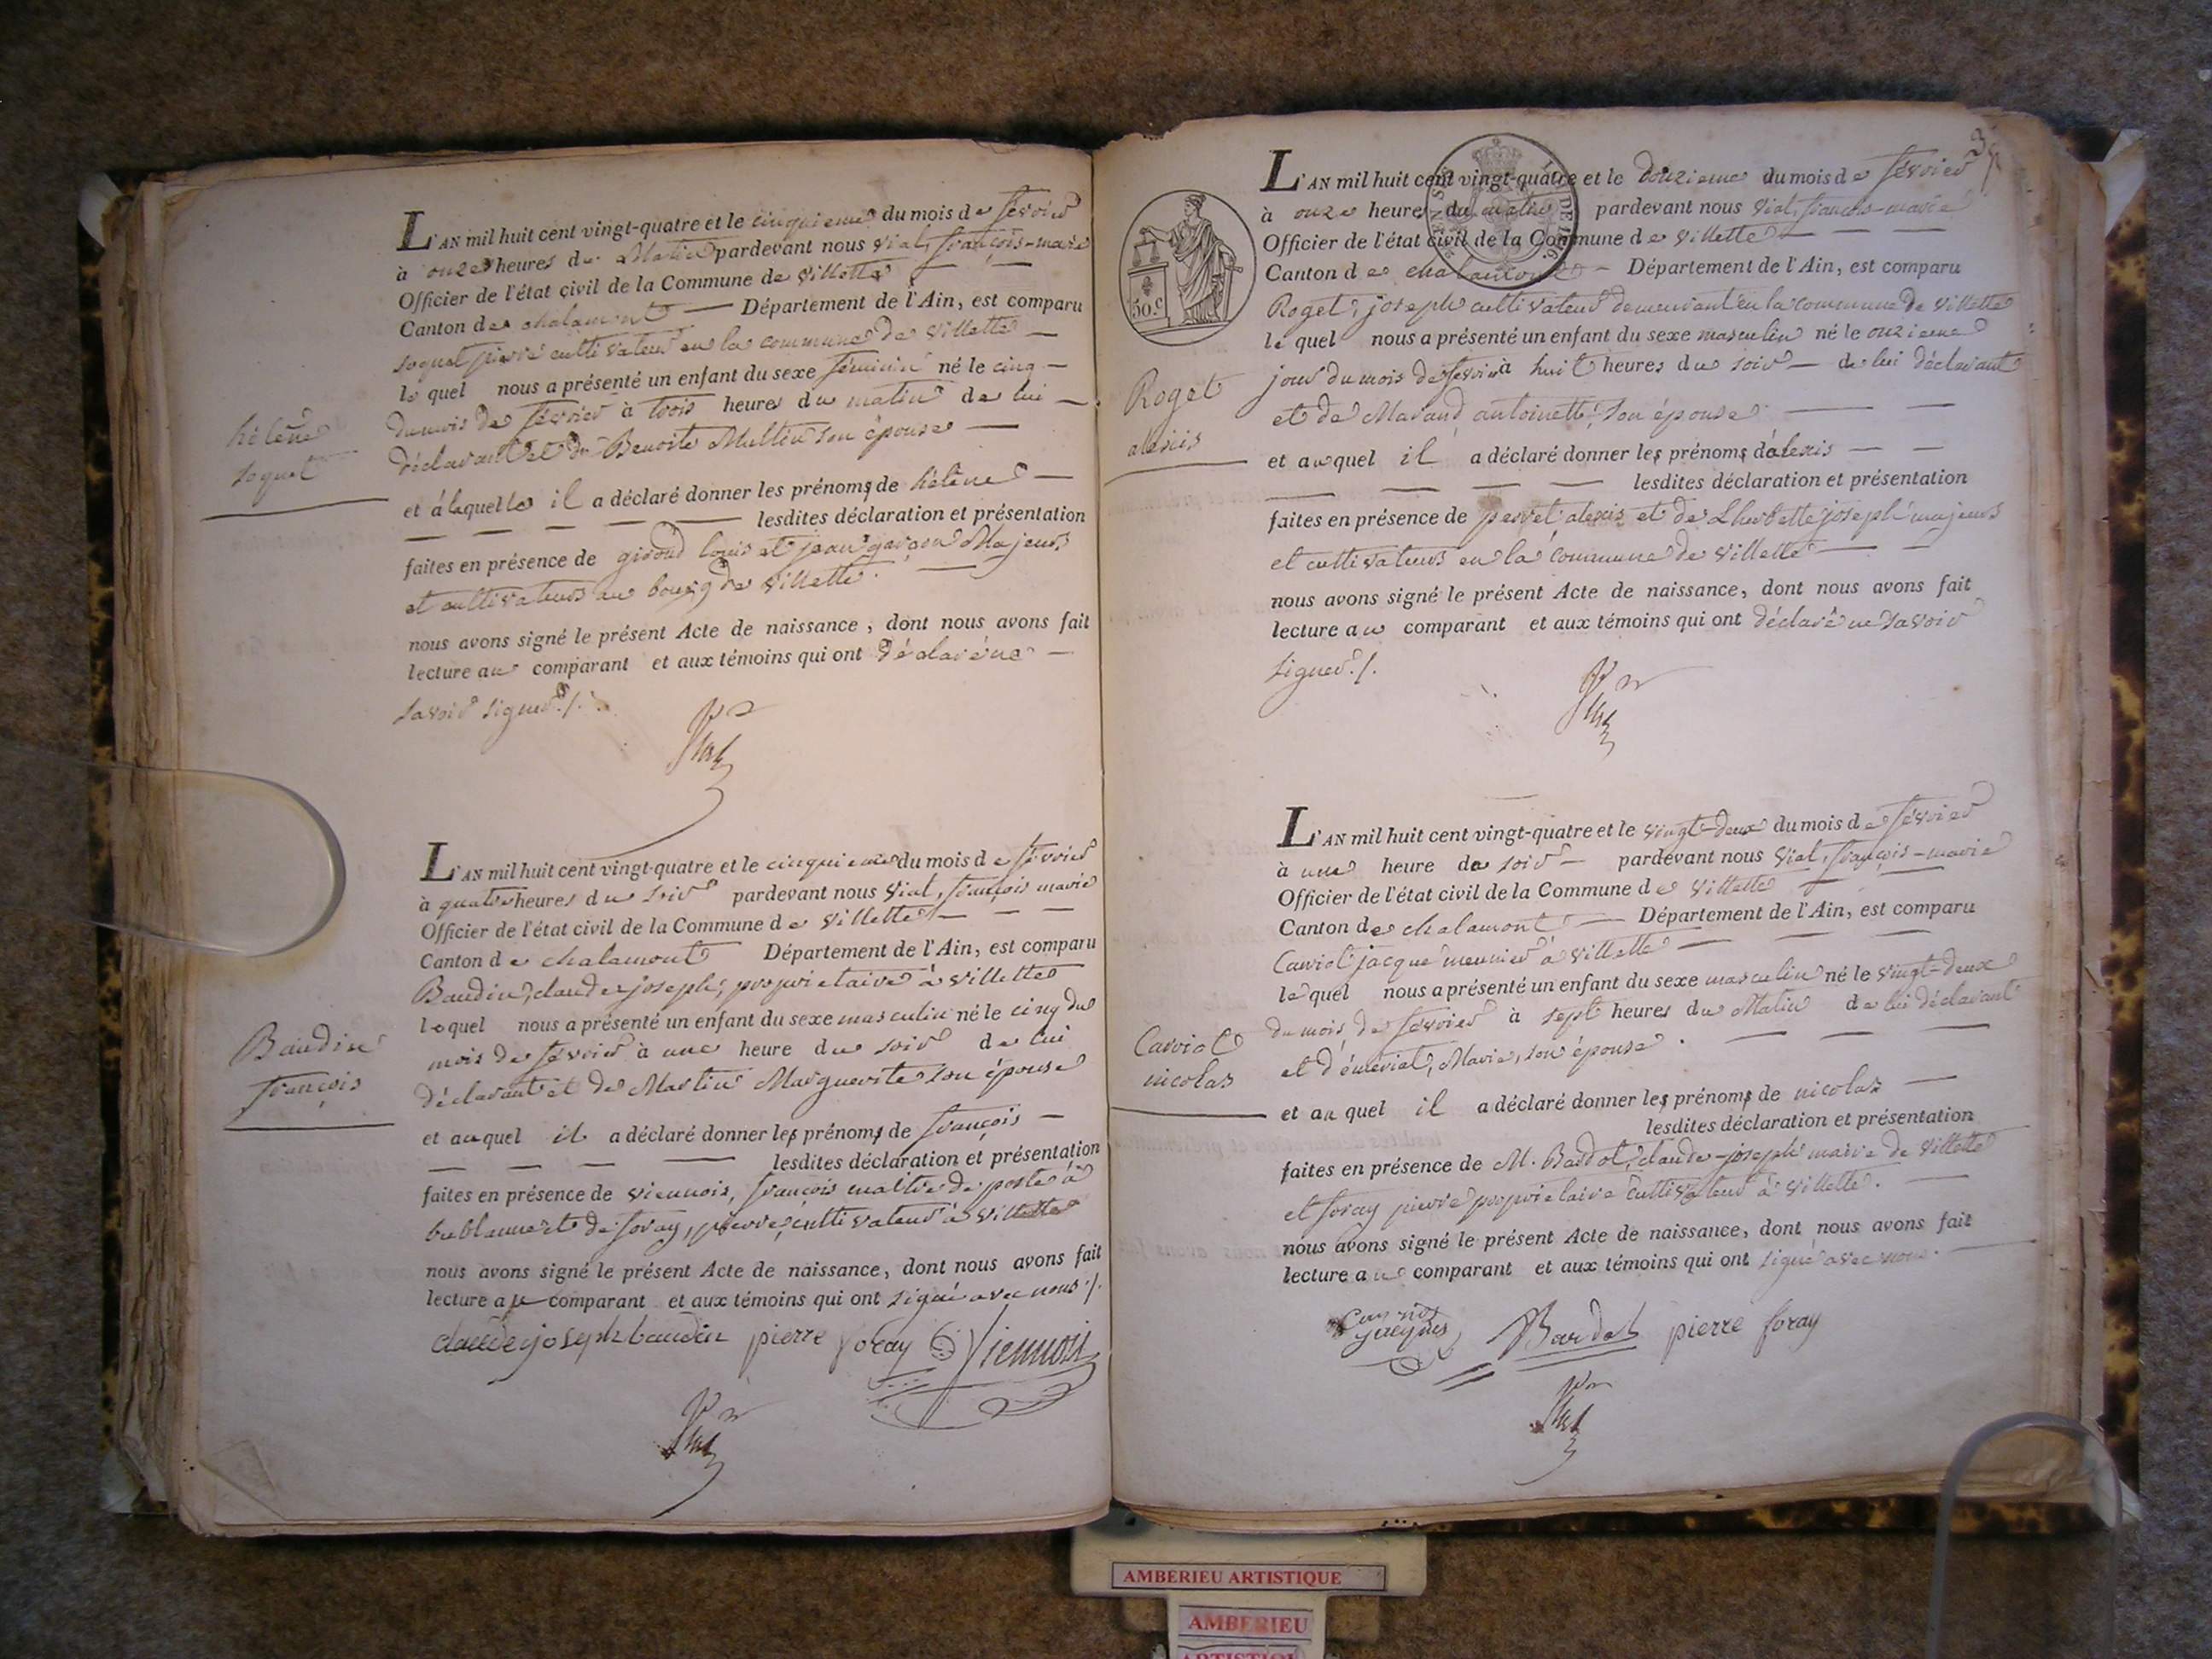 L'AN mil huit cent vingt-quatre et le cinquieme du mois de fevrier
à onze heures du Matin pardevant nous Vial, françois-marie
Officier de l'état civil de la Commune de Villette
Canton de chalamont Département de l'Ain, est comparu
soquet pierre cultivateur en la commune de Villette
le quel nous a présenté un enfant du sexe féminin né le cinq
du mois de fevrier à trois heures du matin de lui
déclarant et de Benoite Multin son épouse
hélène
soquet
et à laquelle il a déclaré donner les prénoms de hélène
lesdites déclaration et présentation
faites en présence de giroud louis et jean garçon Majeurs
et cultivateurs au bourg de Villette.
nous avons signé le présent Acte de naissance, dont nous avons fait
lecture au comparant et aux témoins qui ont déclaré ne
savoir signer ./.
Vial
L'AN mil huit cent vingt-quatre et le cinquieme du mois de fevrier
à quatre heures du soir pardevant nous Vial, françois marie
Officier de l'état civil de la Commune de Villette
Canton de chalamont Département de l'Ain, est comparu
Baudin, claude joseph, propriétaire à Villette
lequel nous a présenté un enfant du sexe masculin né le cinq du
mois de fevrier à une heure du soir de lui
déclarant et de Martin Marguerite son épouse
Baudin
françois
et auquel il a déclaré donner les prénoms de françois
lesdites déclaration et présentation
faites en présence de viennois, françois maitre de poste à
bublanne et de foray, pierre, cultivateur à Villette
nous avons signé le présent Acte de naissance, dont nous avons fait
lecture au comparant et aux témoins qui ont signé avec nous ./.
claude joseph baudin pierre foray Viennois
Vial
L'AN mil huit cent vingt-quatre et le douzieme du mois de fevrier
à onze heure du matin pardevant nous Vial, françois-marie
Officier de l'état civil de la Commune de Villette
Canton de chalamont Département de l'Ain, est comparu
50.c
Roget, joseph cultivateur demeurant en la commune de Villette
le quel nous a présenté un enfant du sexe masculin né le onzieme
jour du mois de fevrier à huit heures du soir de lui déclarant
et de Marand antoinette, son épouse
Roget
alexis
et auquel il a déclaré donner les prénoms d'alexis
lesdites déclaration et présentation
faites en présence de pervet alexis et de Lherbette joseph majeurs
et cultivateurs en la commune de Villette
nous avons signé le présent Acte de naissance, dont nous avons fait
lecture au comparant et aux témoins qui ont déclaré ne savoir
signer ./.
Vial
L'AN mil huit cent vingt-quatre et le vingt-deux du mois de fevrier
à une heure de soir pardevant nous Vial, françois-marie
Officier de l'état civil de la Commune de Villette
Canton de chalamont Département de l'Ain, est comparu
Carriot jacque meunier à Villette
le quel nous a présenté un enfant du sexe masculin né le vingt-deux
du mois de fevrier à sept heures du Matin de lui déclarant
et d'émeriat, Marie, son épouse.
Carriot
nicolas
et au quel il a déclaré donner les prénoms de nicolas
lesdites déclaration et présentation
faites en présence de M. Bardot, claude-joseph maire de Villette
et foray pierre propriétaire cultivateur à Villette.
nous avons signé le présent Acte de naissance, dont nous avons fait
lecture au comparant et aux témoins qui ont signé avec nous.
Carriot
jacques Bardot pierre foray
Vial
AMBERIEU ARTISTIQUE
AMBERIEU
ARTISTIQUE